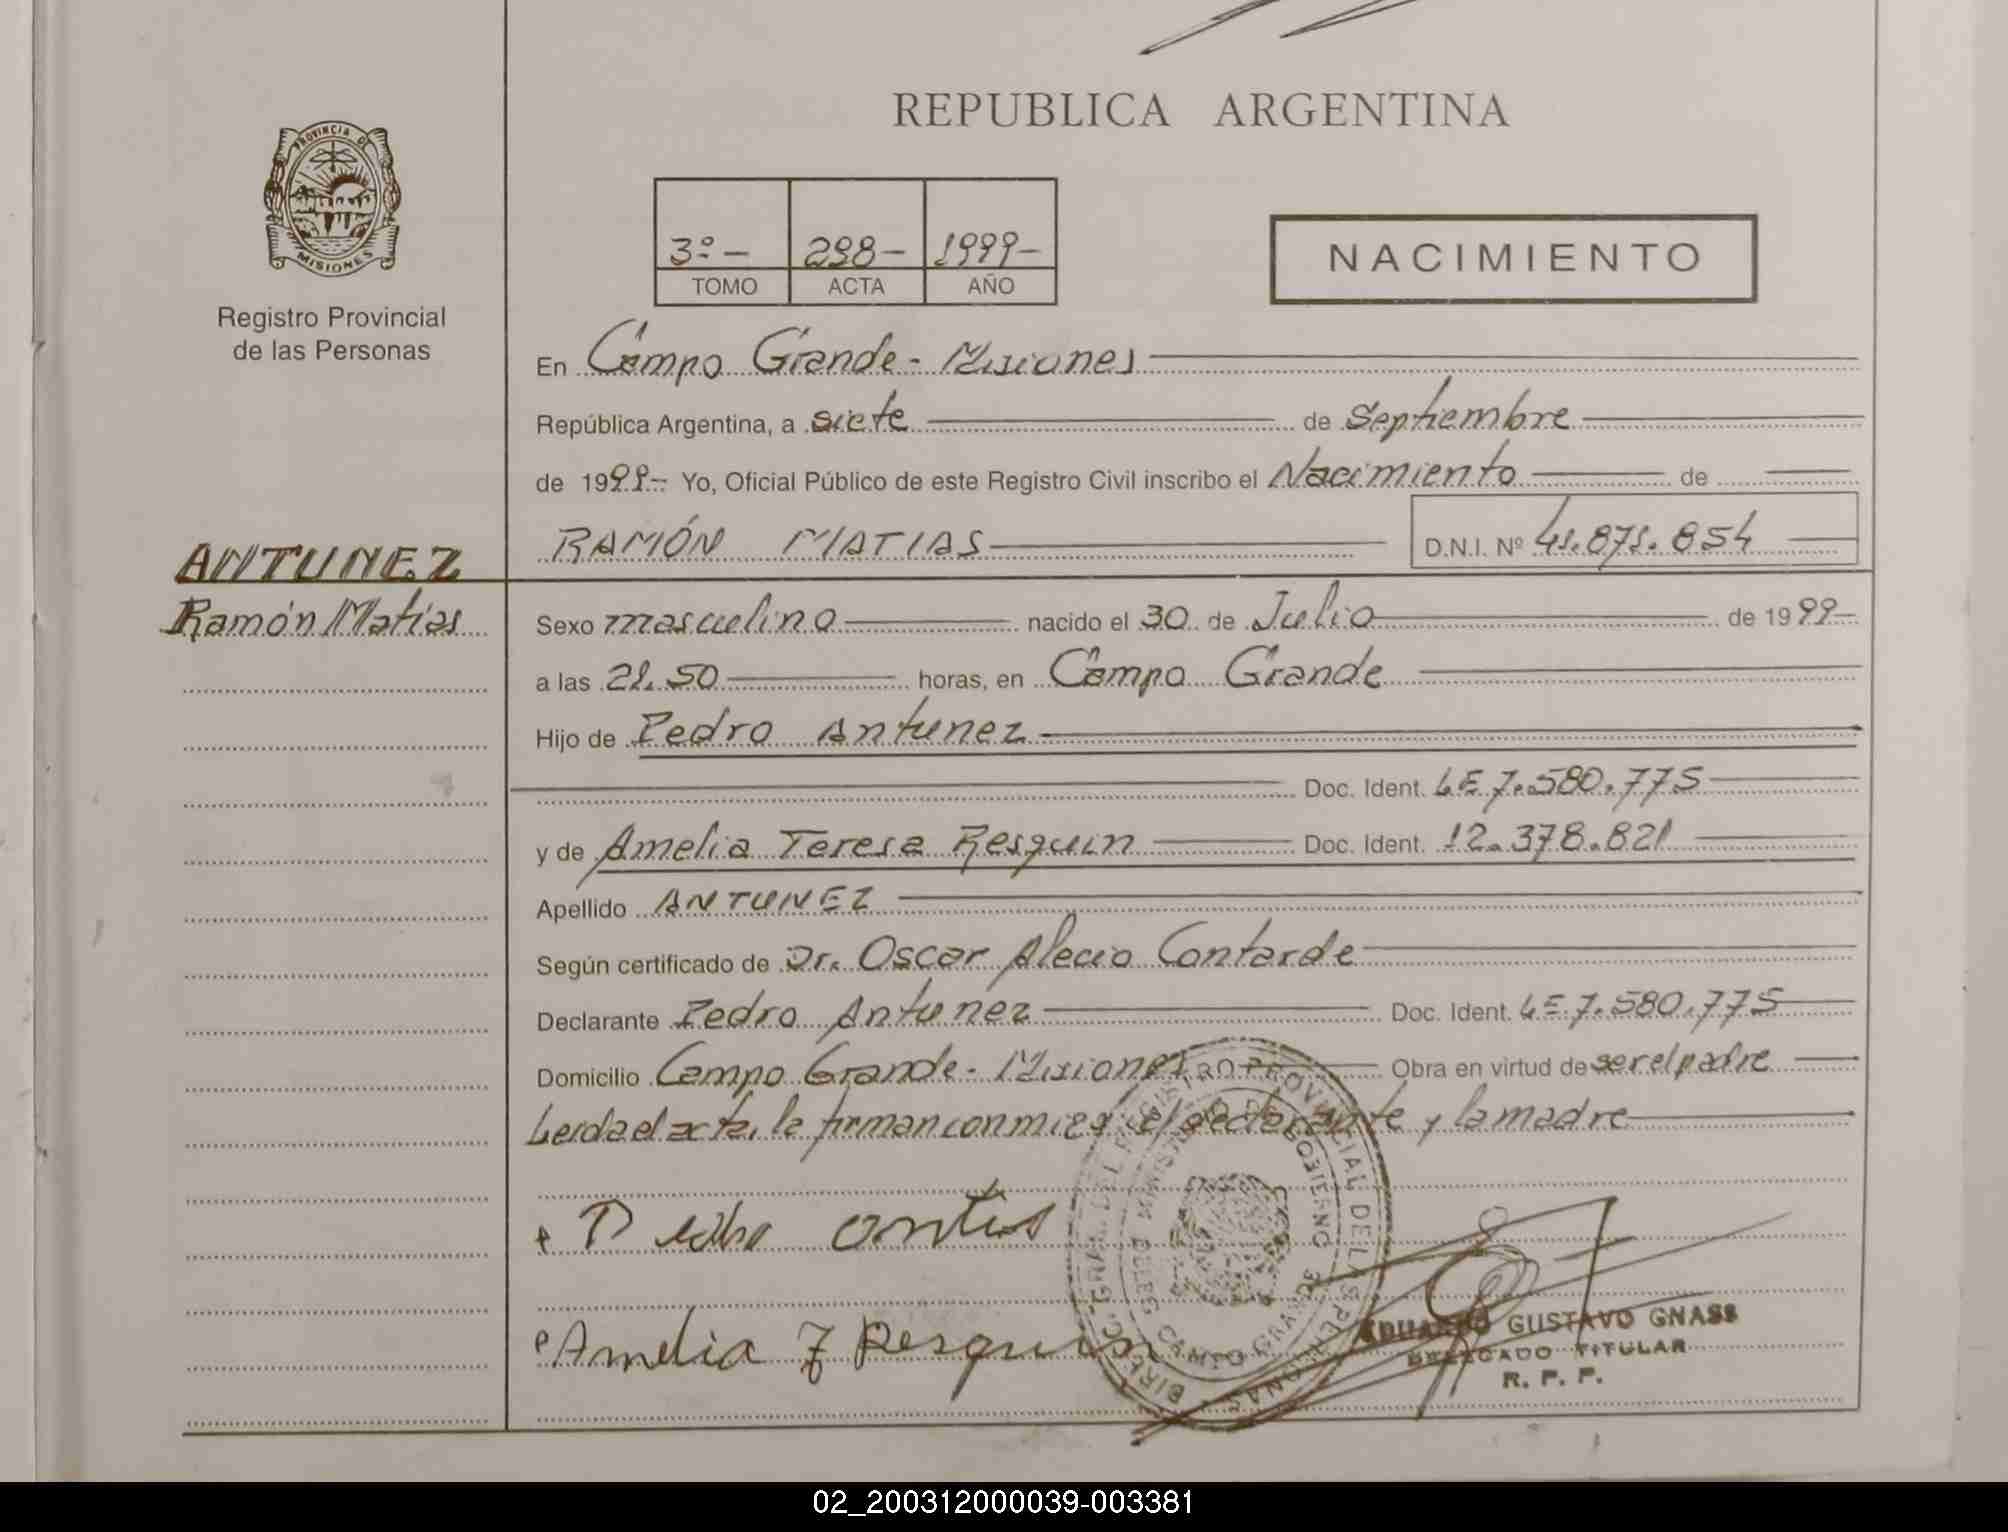 REPUBLICA ARGENTINA
PROVINCIA DE
MISIONES
Registro Provincial
de las Personas
3º - 298 - 1999 -
TOMO ACTA AÑO
NACIMIENTO
En Campo Grande - Misiones
República Argentina, a siete de Septiembre
de 1999 - Yo, Oficial Público de este Registro Civil inscribo el Nacimiento de
RAMÓN MATIAS D.N.I. Nº 41.871.854
ANTUNEZ
Ramón Matías
Sexo masculino nacido el 30 de Julio de 1999 -
a las 21.50 horas, en Campo Grande
Hijo de Pedro Antunez
Doc. Ident. LE 7.580.775
y de Amelia Teresa Resquin Doc. Ident. 12.378.821
Apellido ANTUNEZ
Según certificado de Dr. Oscar Alecio Contarde
Declarante Pedro Antunez Doc. Ident. LE 7.580.775
Domicilio Campo Grande - Misiones Obra en virtud de ser el padre
Leida el acta, la firman conmigo el declarante y la madre
Amelia T Resquin
EDUARDO GUSTAVO GNASS
DELEGADO TITULAR
R. P. P.
02_200312000039-003381